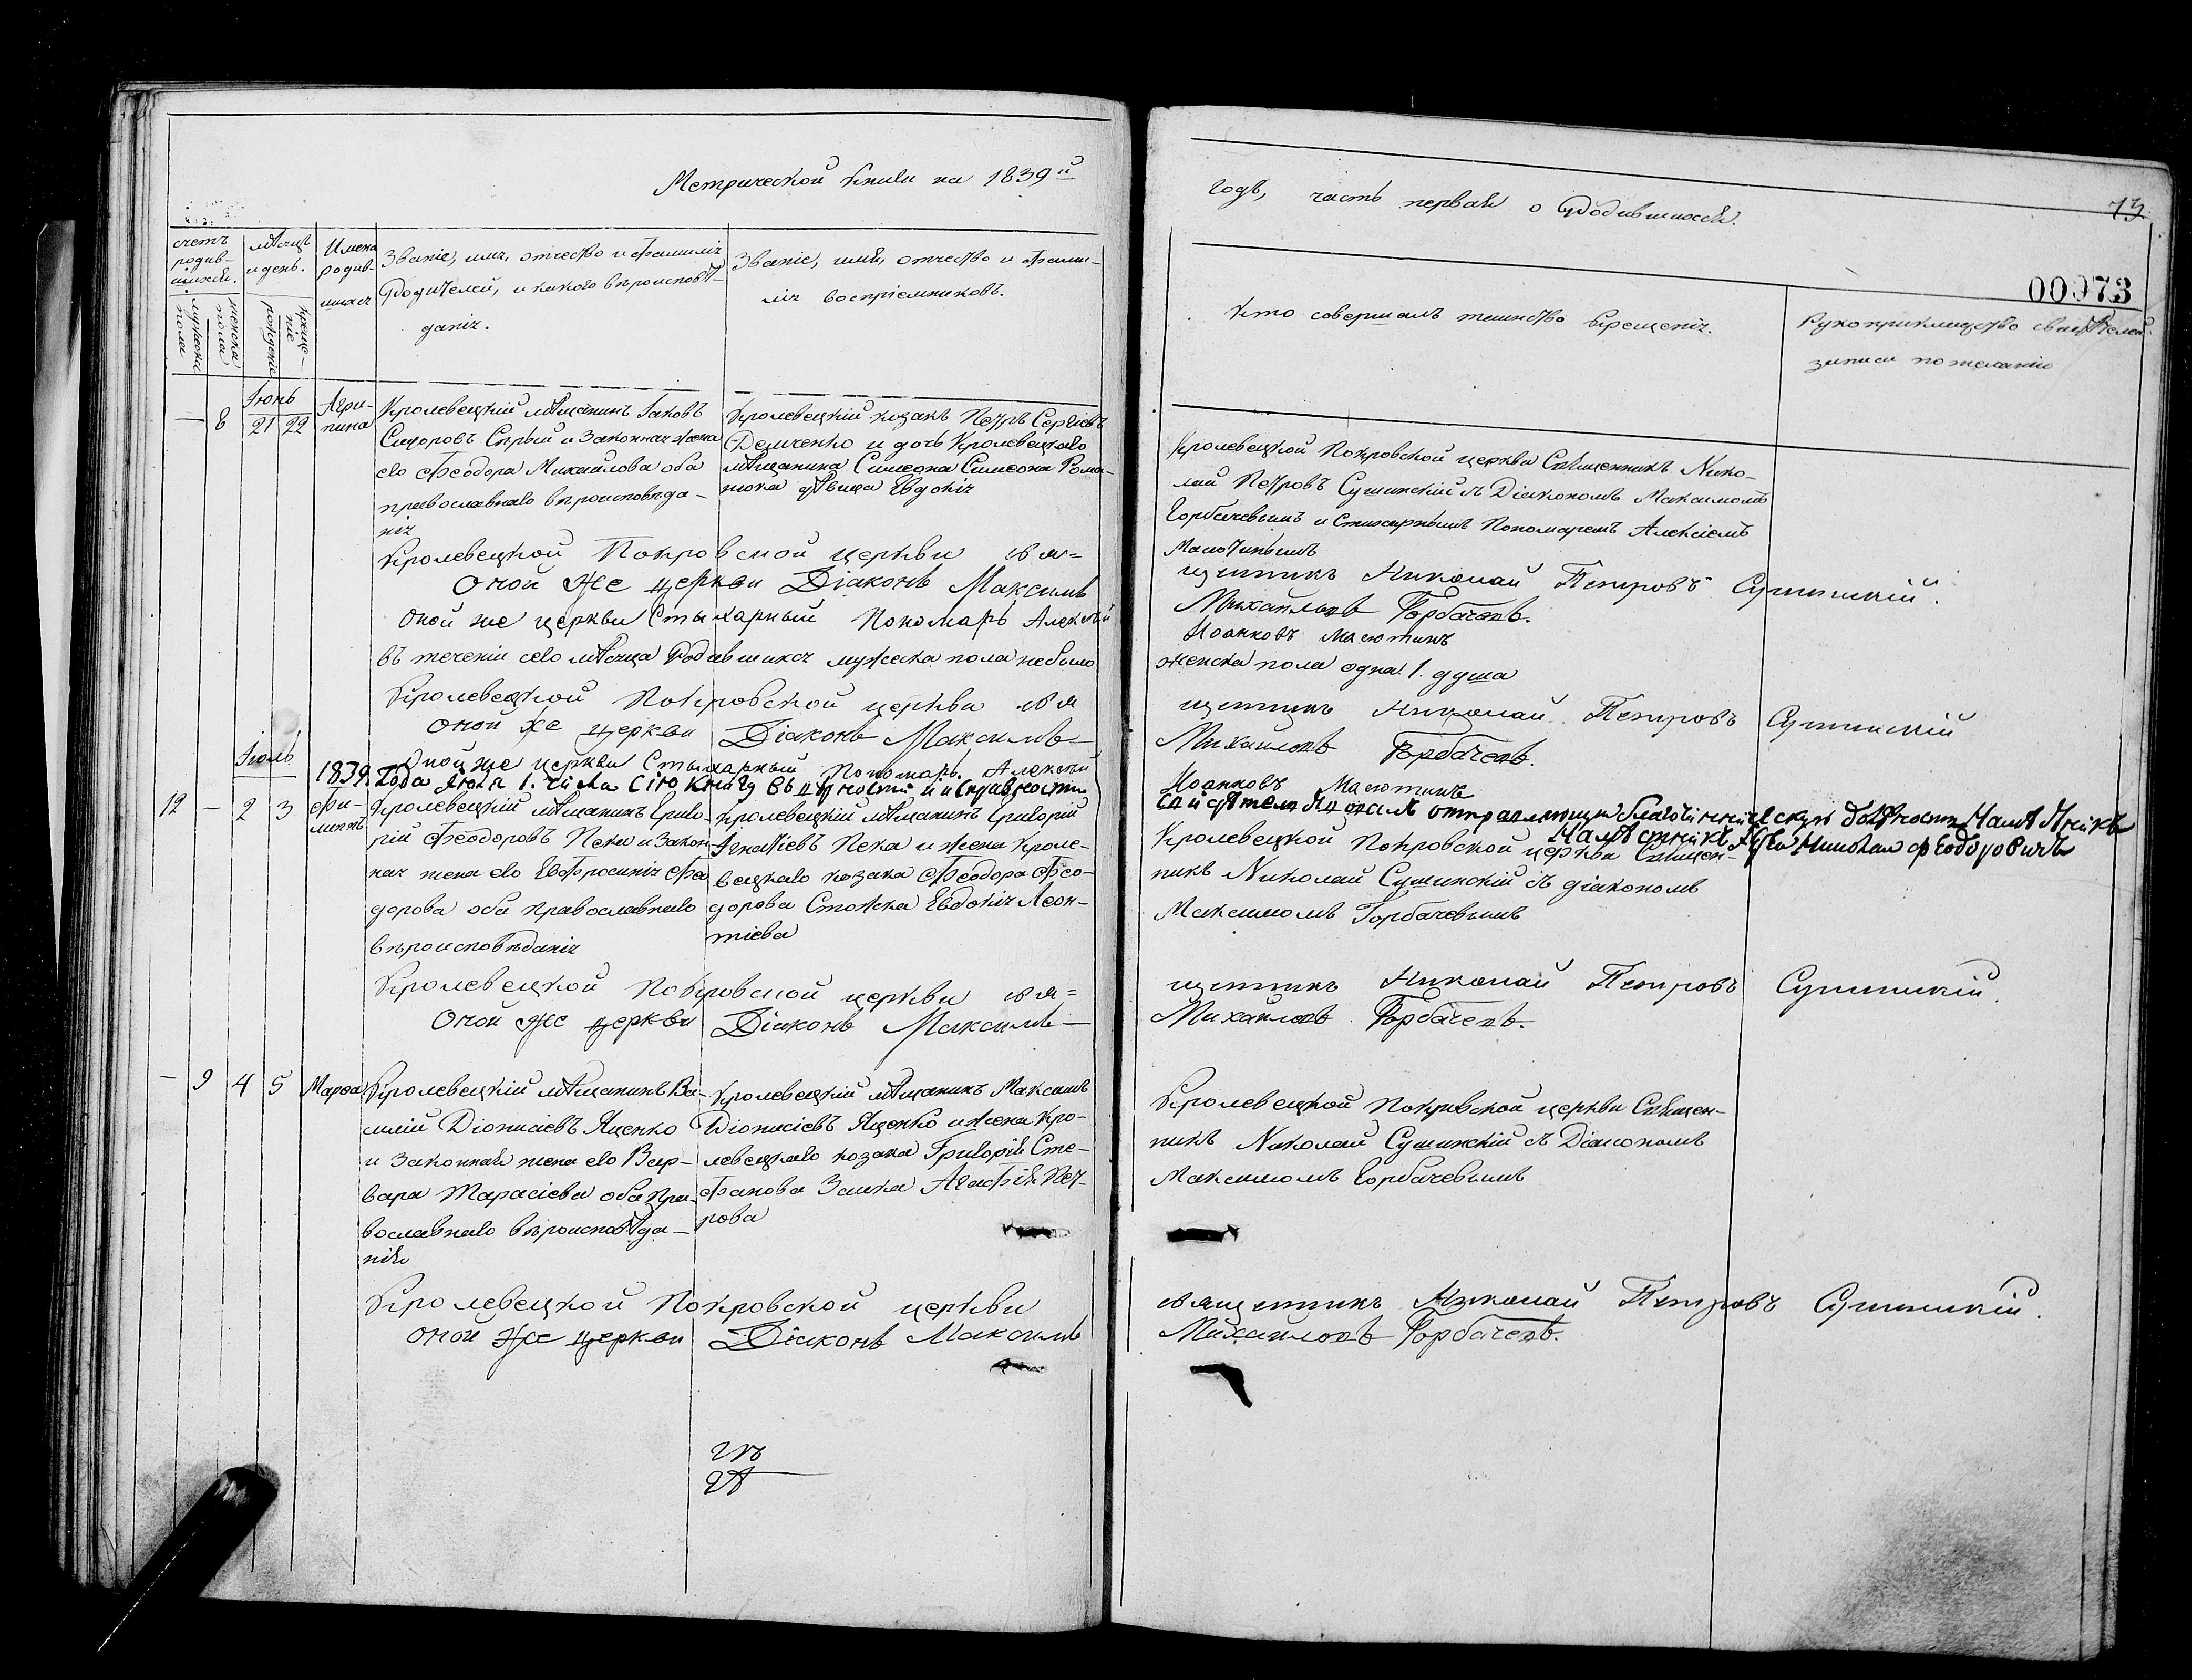 Метрической книги на 1839й
годъ, часть первая о Родившихся.
73
00973
счетъ родив-шихся.
мѣсяцъ и день.
Имена родив-шихся
Званіе, имя, отчество и фамилія
Родителей, и какого вѣроисповѣ-
данія.
Званіе, имя, отчество и фами-
лія воспріемниковъ.
Кто совершалъ таинство крещенія.
Рукоприкладство свидѣтелей
записи по желанію
мужска пола
женска пола
рожденіе
креще-ніе
Іюнь
— 8 21 22
Агри-
пина
Кролевецкій мѣщанинъ Іаковъ
Сидоровъ Сѣрый и Законная жена
его Феодора Михайлова оба
православнаго вѣроисповѣда-
нія
Кролевецкій козакъ Петръ Сергіевъ
Демченко и дочь Кролевецкаго
мѣщанина Симеона Симеона Рома-
нюка дѣвица Евдокія
Кролевецкой Покровской церкви Священникъ Нико-
лай Петровъ Сушинскій съ Діакономъ Максимомъ
Горбачевымъ и Стихарнымъ Пономаремъ Алексіемъ
Масютинымъ
Кролевецкой Покровской церкви свя=
щенникъ Николай Петровъ Сушинскій.
Оной же церкви Діаконъ Максимъ
Михайловъ Горбачевъ.
Оной же церкви Стыхарный Пономарь Алексѣй
Иоанновъ Масютинъ
въ теченіи сего мѣсяца Родившихся мужеска пола небыло
женска пола одна 1. душа
Кролевецкой Покровской церкви свя
щенникъ Николай Петровъ Сушинскій
Оной же церкви Діаконъ Максимъ
Михайловъ Горбачевъ.
Оной же церкви Стыхарный Пономарь. Алексѣй
Иоанновъ Масютинъ
1839. Года Июля 1. числа Сію Книгу въ цѣлости и исправности
Іюль
12 — 2 3
Фи-
липпъ
Кролевецкій мѣщанинъ Григо-
рій Феодоровъ Пека и Закон
ная жена его Евфросинія Фео
дорова оба православнаго
вѣроисповѣданія
Кролевецкій мѣщанинъ Григорій
Игнатіевъ Пека и жена Кроле-
вецкаго козака Феодора Фео-
дорова Стожка Евдокія Леон-
тіева
Кролевецкой Покровской церкви Священ-
никъ Николай Сушинскій съ діакономъ
Максимомъ Горбачевымъ
Кролевецкой Покровской церкви свя=
щенникъ Николай Петровъ Сушинскій.
Оной же церкви Діаконъ Максимъ
Михайловъ Горбачевъ.
— 9 4 5
Марѳа
Кролевецкій мѣщанинъ Ва-
силій Діонисіевъ Яценко
и Законная жена его Вар-
вара Тарасіева оба пра-
вославнаго вѣроисповѣда-
нія
Кролевецкій мѣщанинъ Максимъ
Діонисіевъ Яценко и жена Кро-
левецкаго козака Григорія Сте-
фанова Заика Агафія Пет-
рова
Кролевецкой Покровской церкви Священ-
никъ Николай Сушинскій съ Діакономъ
Максимомъ Горбачевымъ
Кролевецкой Покровской церкви
священникъ Николай Петровъ Сушинскій.
Оной же церкви Діаконъ Максимъ
Михайловъ Горбачевъ.